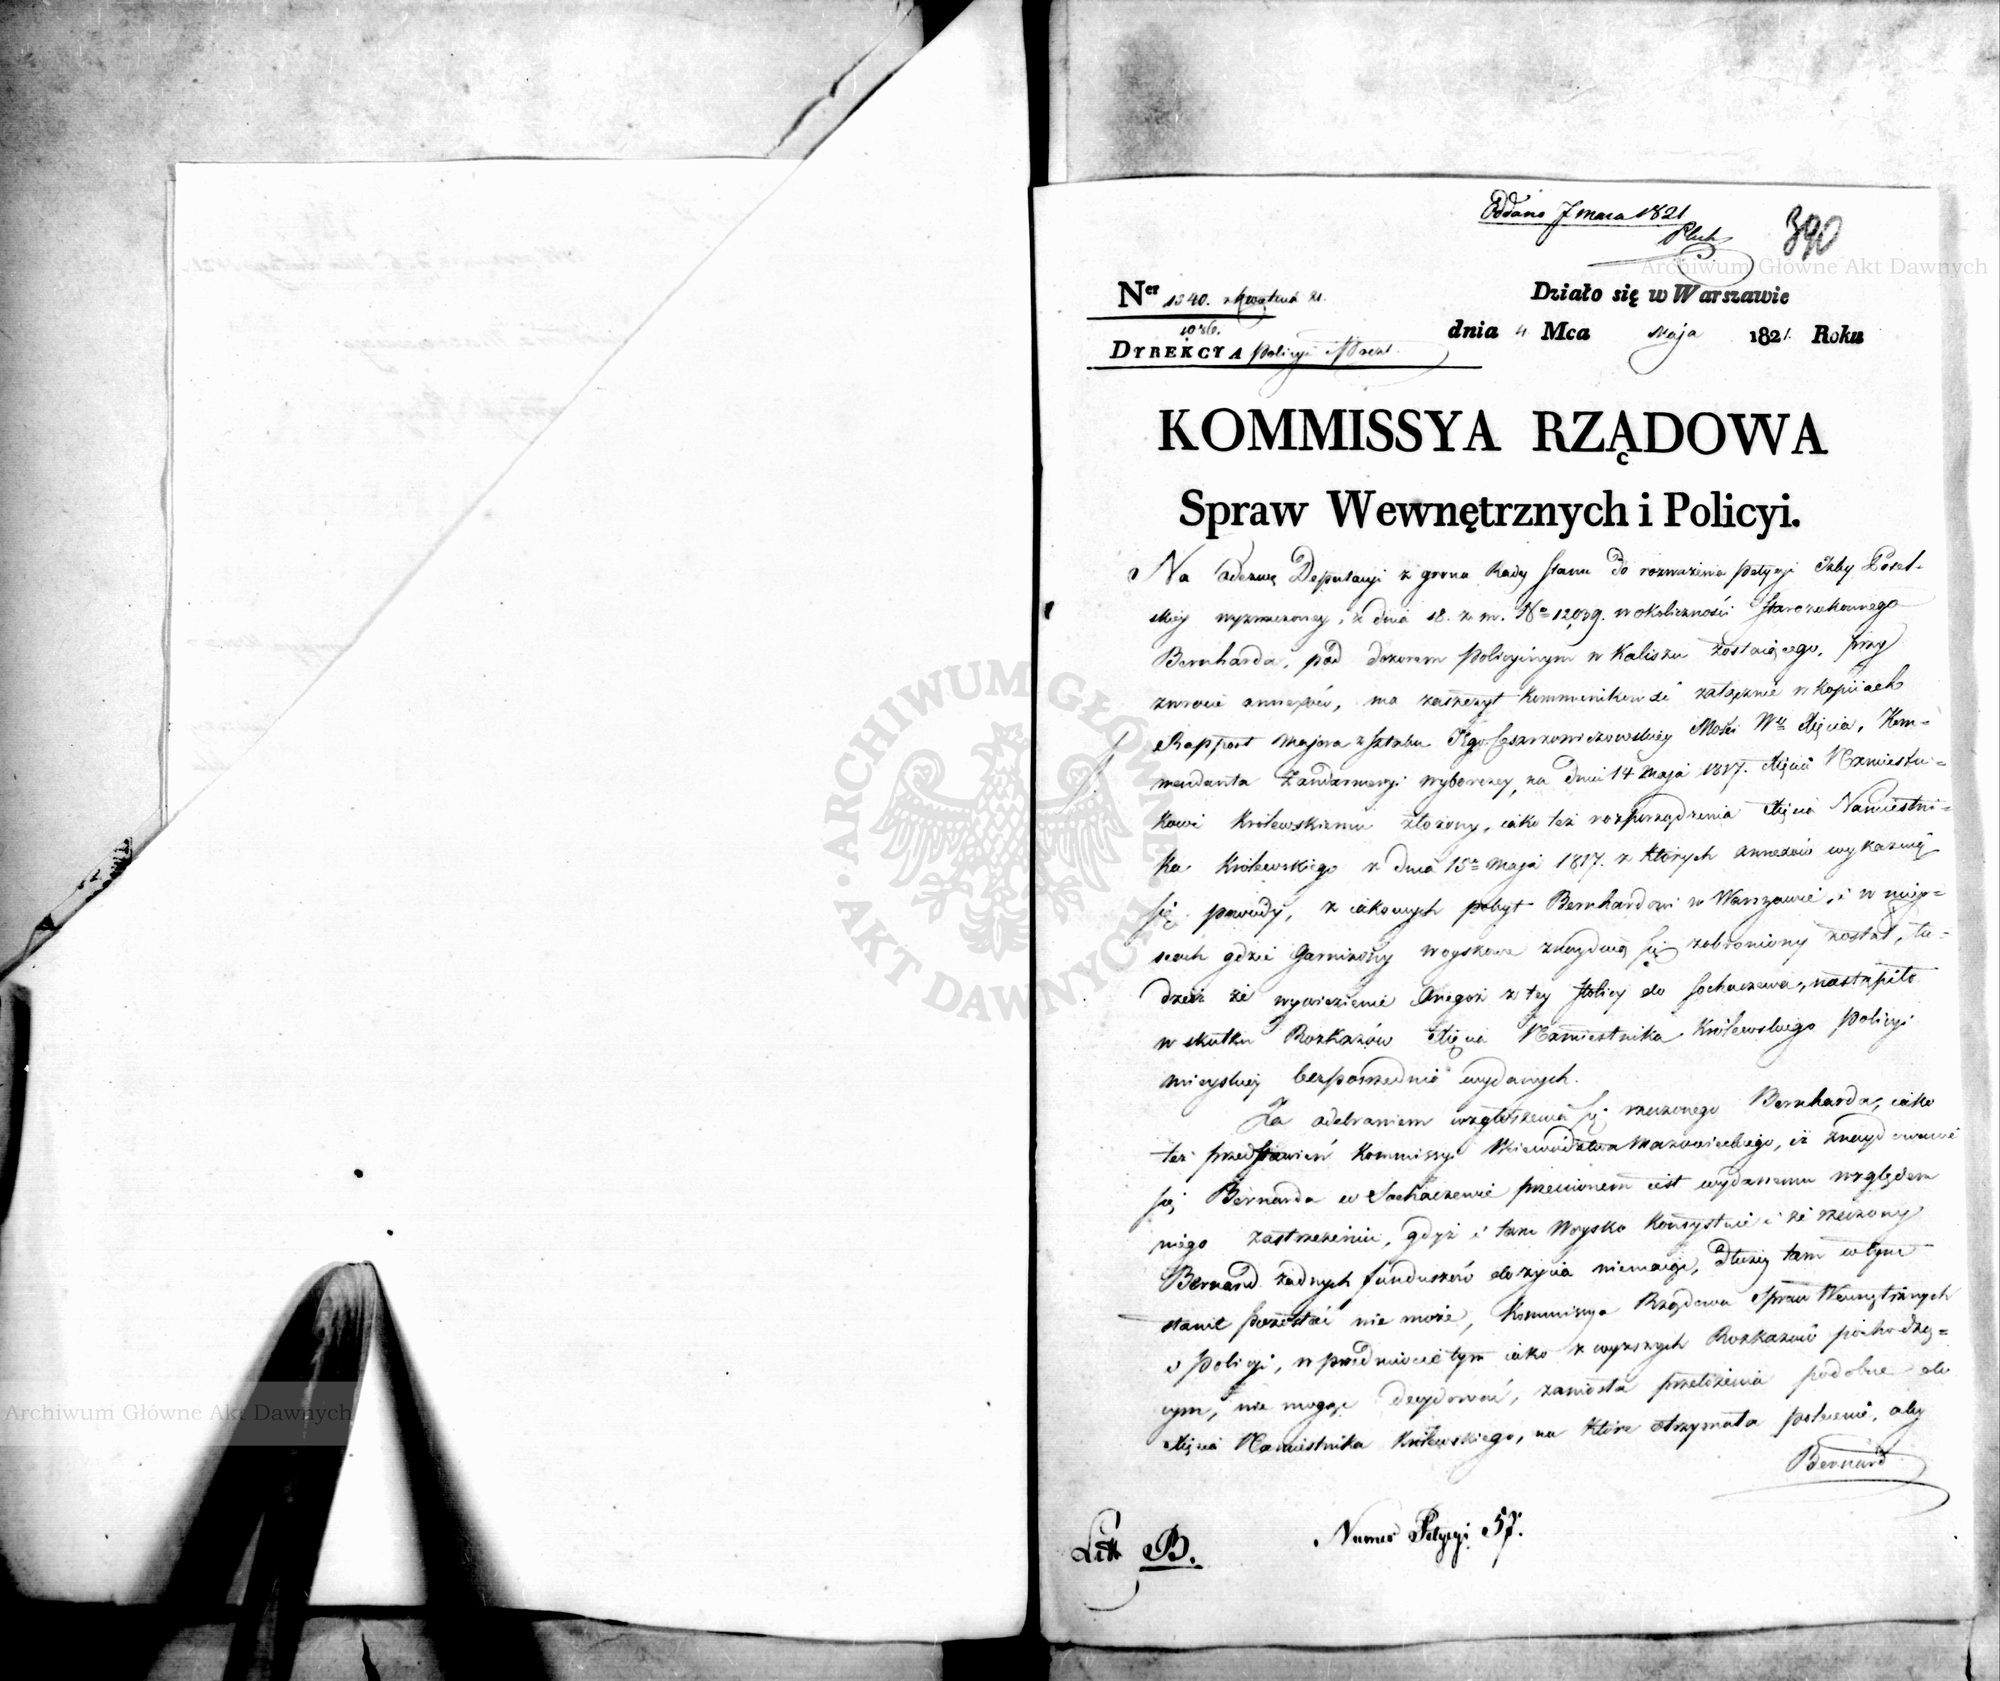 Oddano 7 maia 1821
390
Ner 1340. z Kwietnia 21.
Działo się w Warszawie
1036.
dnia 4 Mca Maja 1821. Roku
DYREKCYA Policyi i Poczt.
KOMMISSYA RZĄDOWA
Spraw Wewnętrznych i Policyi.
Na Odezwę Deputacyi z grona Rady Stanu do rozważenia Petycyi Izby Posel-
skiey wyznaczoney, z dnia 18. z. m. No 12039. w okoliczności Starozakonnego
Bernharda, pod dozorem Policyinym w Kaliszu zostaiącego, przy
zwrocie annexów, ma zaszczyt kommunikować załącznie w kopiiach
Rapport Majora z Sztabu Jgo Cesarzowiczowskiey Mości Wo Xięcia, Kom-
mendanta Żandarmeryi wyborczey, na dniu 14 Maja 1817. Xięciu Namiestni-
kowi Królewskiemu złożony, iako też rozporządzenia Xięcia Namiestni-
ka Królewskiego z dnia 15 Maja 1817. z których annexów wykazuią
się powody, z iakowych pobyt Bernhardowi w Warszawie, i w miey-
scach gdzie Garnizony woyskowe znayduią się zabroniony został, tu-
dzież że wywiezienie Onegoż z tey Stolicy do Sochaczewa, nastąpiło
w skutku Rozkazów Xięcia Namiestnika Królewskiego Policyi
mieyskiey bezpośrednio wydanych.
Za odebraniem wzgłoszenia się rzeczonego Bernharda, iako
też przedstawień Kommissyi Woiewództwa Mazowieckiego, iż znaydowanie
się Bernarda w Sochaczewie przeciwnem iest wydanemu względem
niego zastrzeżeniu, gdyż i tam Woysko konsystuie i że rzeczony
Bernard żadnych funduszów do życia niemaiąc, dłużey tam w tym
stanie pozostać nie może, Kommissya Rządowa Spraw Wewnętrznych
i Policyi, w przedmiocie tym iako z wyższych Rozkazów pochodzą-
cym, nie mogąc decydować, zaniosła przełożenia podobne do
Xięcia Namiestnika Królewskiego, na które otrzymała polecenie, aby
Bernard
Litt B.
Numer Petycyi 57.
Archiwum Główne Akt Dawnych
ARCHIWUM GŁÓWNE AKT DAWNYCH
Archiwum Główne Akt Dawnych